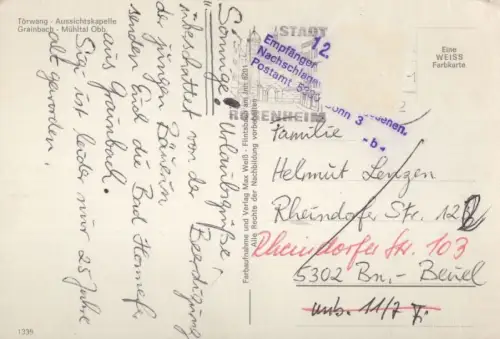 Törwang - Aussichtskapelle
Grainbach - Mühltal Obb.
Sonnige Urlaubsgrüße!
überschattet von der Beerdigung
der jungen Bäuerin
senden Euch die Bad Honnefer
aus Grainbach.
Sie ist leider nur 25 Jahre
alt geworden.
1339
Farbaufnahme und Verlag Max Weiß - Flintsbach am Inn
Alle Rechte der Nachbildung vorbehalten
STADT
ROSENHEIM
12.
Empfänger
Nachschlage
Postamt 5300 Bonn 3
-b-
Eine
WEISS
Farbkarte
Familie
Helmut Lenzen
Rheindorfer Str. 12
Rheindorfer Str. 103
5302 Bn.-Beuel
unb. 11/7